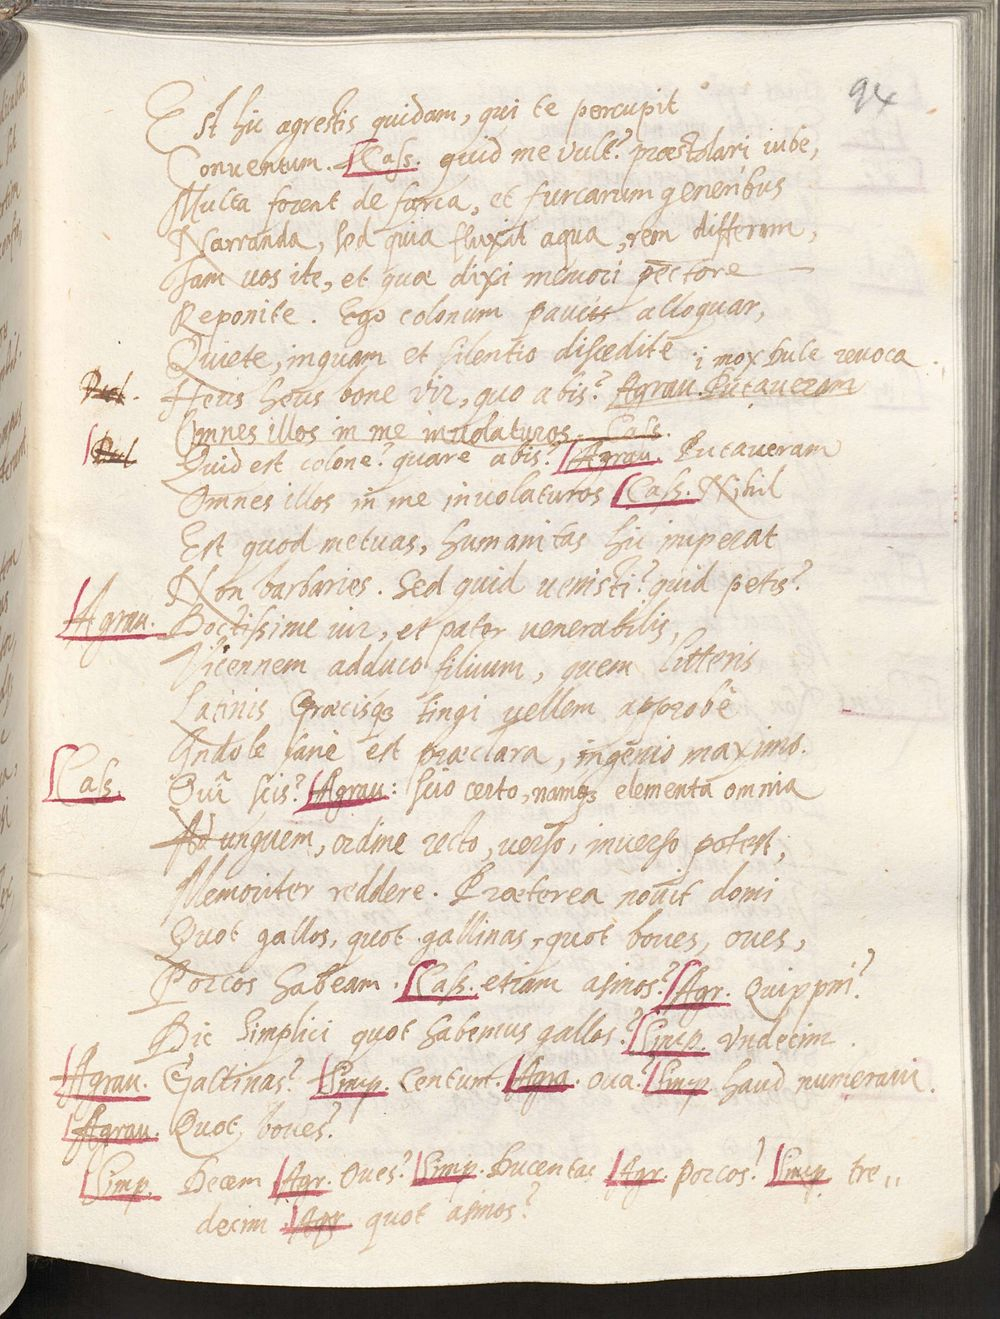 94
Est hic agrestis quidam, qui te percupit
Conventum. Cass. quid me vult? præstolari iube,
Multa forent de furca, et furcarum generibus
Narranda, sed quia fluxit aqua, rem differam,
Iam vos ite, et quæ dixi memori pectore
Reponite. Ego colonum paucis alloquar,
Quiete, inquam et silentio discedite. i mox huc revoca
Heus heus bone vir, quo abis? Agrau. Putaveram
Omnes illos in me involaturos. Cass.
Quid est colone? quare abis? Agrau. Putaveram
Omnes illos in me involaturos Cass. Nihil
Est quod metuas, humanitas hic imperat
Non barbaries. Sed quid venisti? quid petis?
Agrau. Doctissime vir, et pater venerabilis,
Vicennem adduco filium, quem litteris
Latinis Græcisq3 tingi vellem approbè
Indole sanè est præclara, ingenio maximo.
Cass. Quî scis? Agrau: scio certo, namq3 elementa omnia
Ad unguem, ordine recto, verso, inverso potest,
Memoriter reddere. Præterea novit domi
Quot gallos, quot gallinas, quot boves, oves,
Porcos habeam. Cass. etiam asinos? Agr. Quippini?
Dic simplici quot habemus gallos? Simp. Undecim.
Agrau. Gallinas? Simp. Centum. Agra. ova? Simp. haud numeravi.
Agrau. Quot boves?
Simp. Decem Agr. oves? Simp. Ducentas Agr. porcos? Simp. tre„
decim Agr quot asinos?